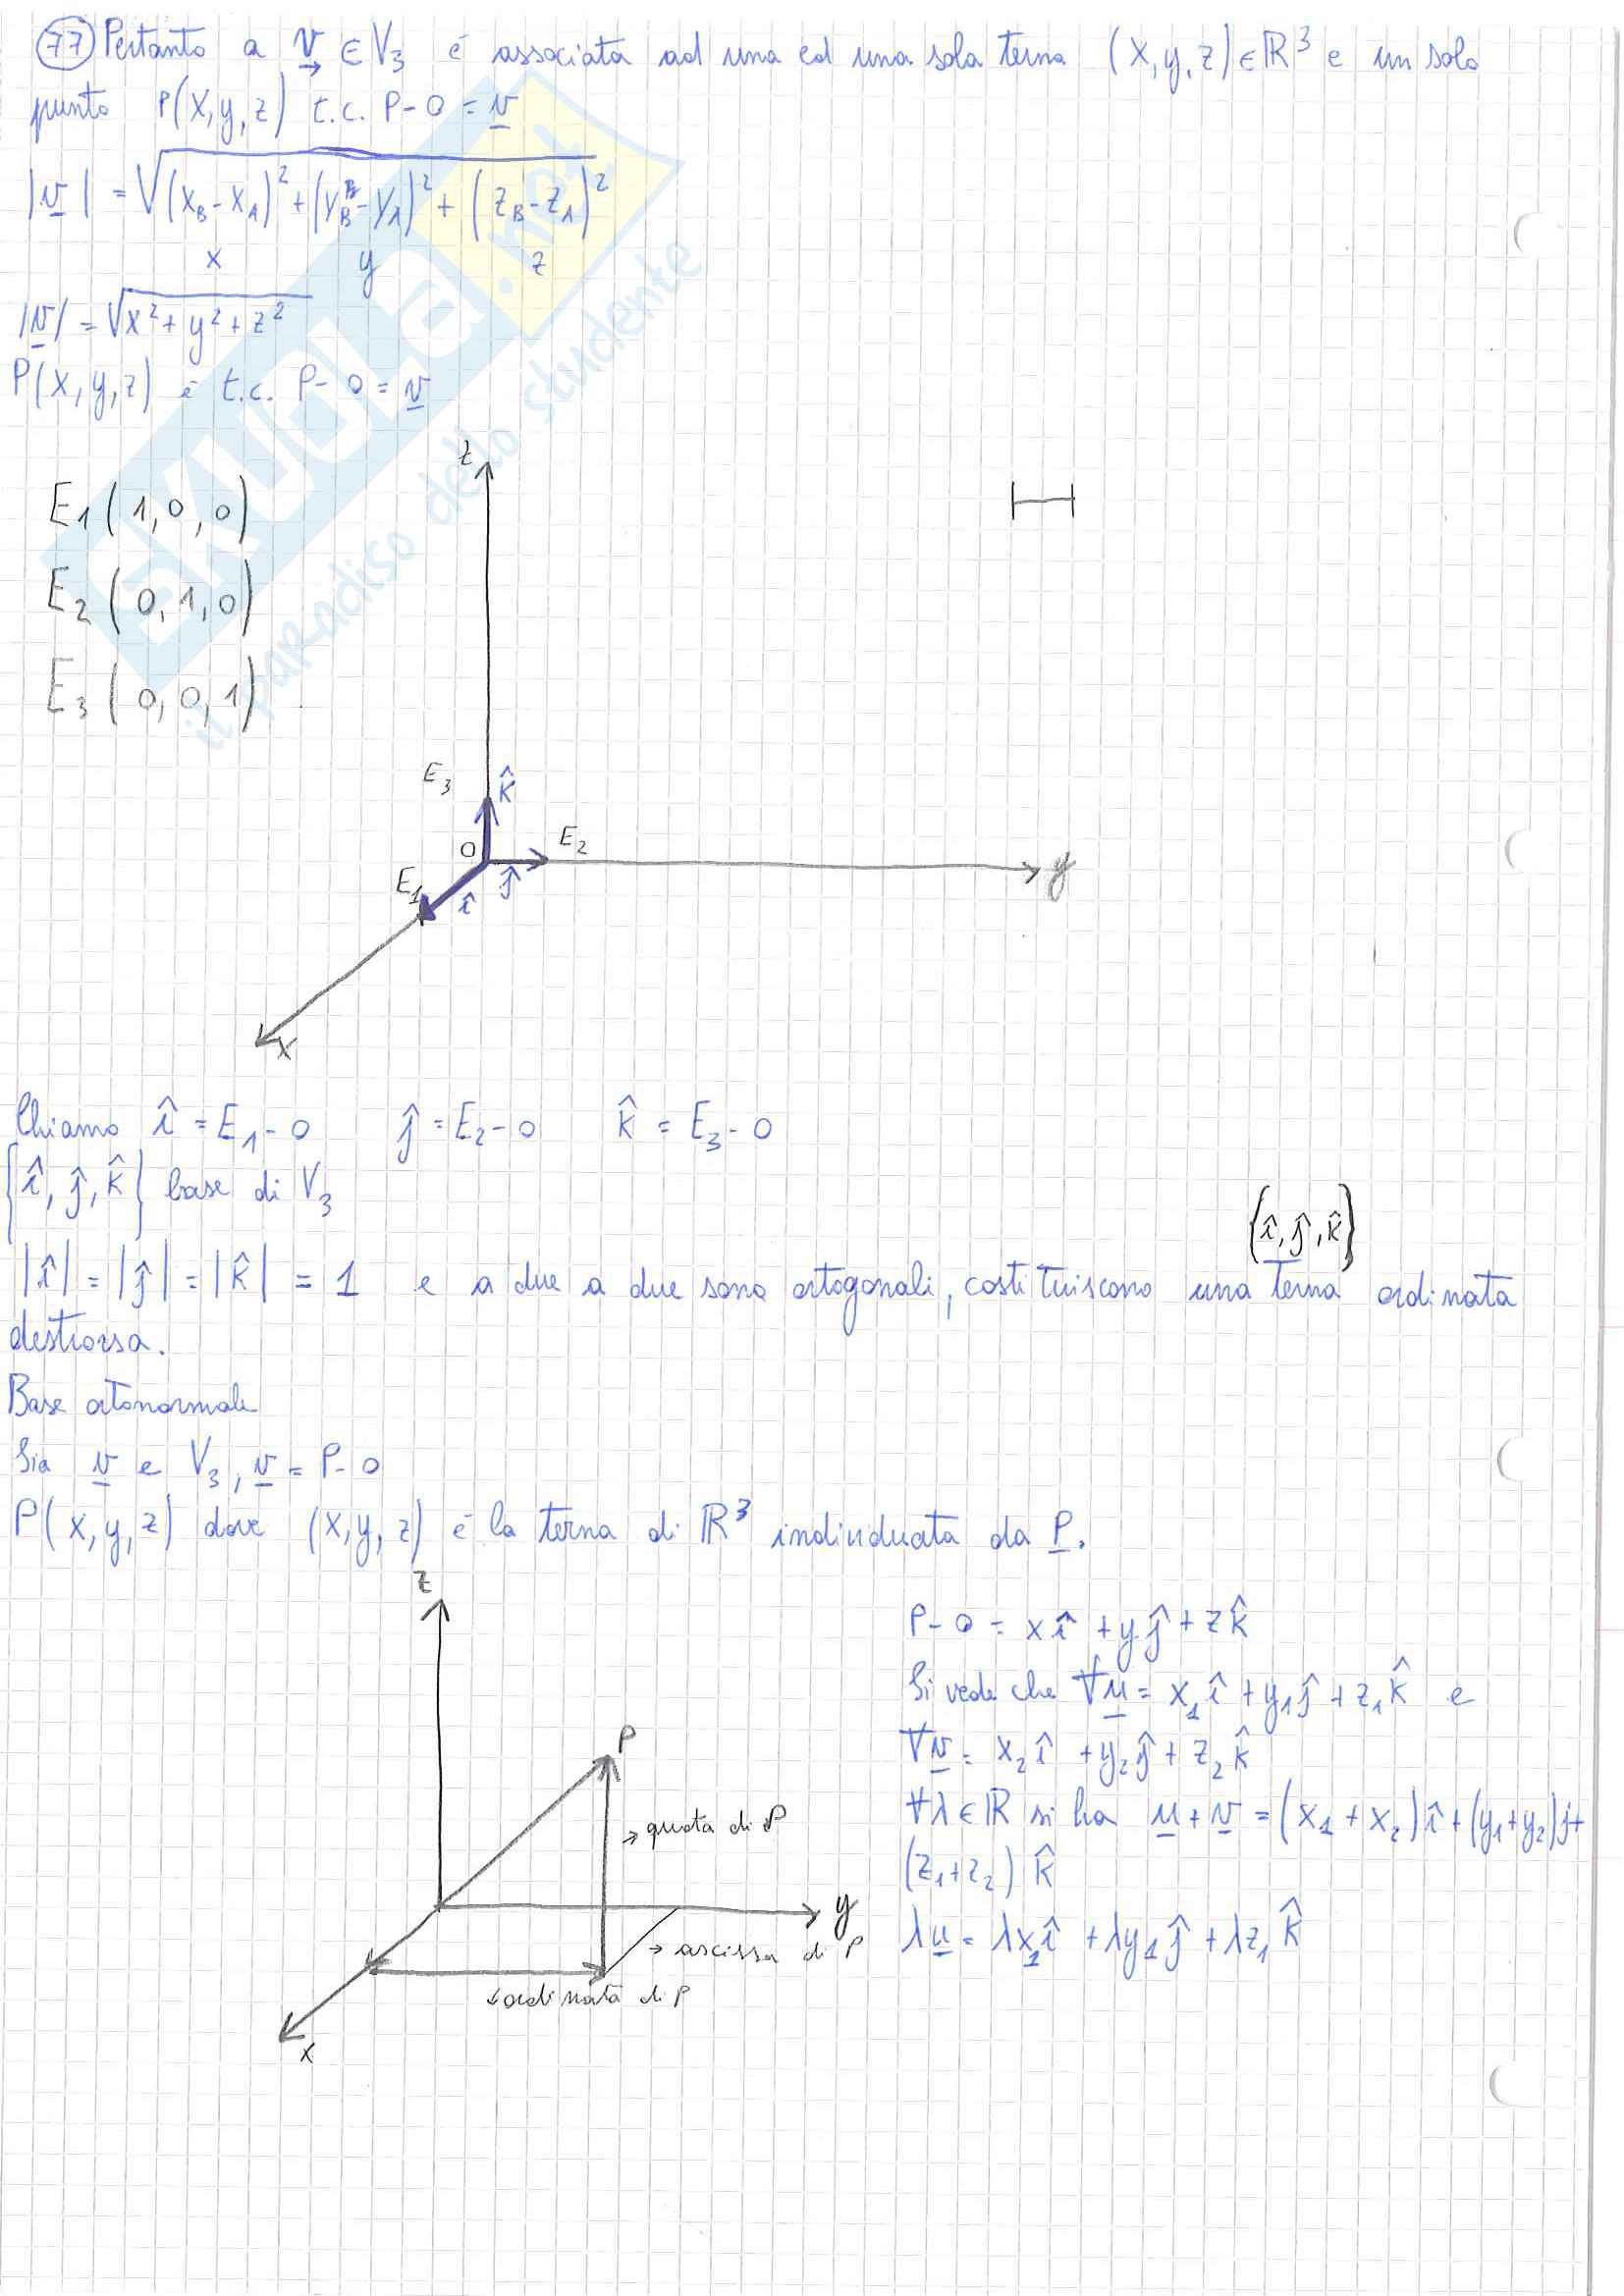 77 Pertanto a v ∈ V₃ è associata ad una ed una sola terna (x,y,z) ∈ ℝ³ e un solo
punto P(x,y,z) t.c. P-O = v
|v| = √(x_B - x_A)² + (y_B - y_A)² + (z_B - z_A)²
x y z
|v| = √x² + y² + z²
P(x,y,z) è t.c. P-O = v
E₁(1,0,0)
E₂(0,1,0)
E₃(0,0,1)
z
E₃ k̂
O E₂
E₁ î ĵ
y
x
Chiamo î = E₁-O ĵ = E₂-O k̂ = E₃-O
{î, ĵ, k̂} base di V₃
{î, ĵ, k̂}
|î| = |ĵ| = |k̂| = 1 e a due a due sono ortogonali, costituiscono una terna ordinata
destrorsa.
Base ortonormale
Sia v e V₃, v = P-O
P(x,y,z) dove (x,y,z) è la terna di ℝ³ individuata da P.
z
P
→ quota di P
y
→ ascissa di P
↙ ordinata di P
x
P-O = xî + yĵ + zk̂
Si vede che ∀u = x₁î + y₁ĵ + z₁k̂ e
∀v = x₂î + y₂ĵ + z₂k̂
∀λ∈ℝ si ha u + v = (x₁ + x₂)î + (y₁+y₂)j+
(z₁+z₂) k̂
λu = λx₁î + λy₁ĵ + λz₁k̂
SKUOLA.net
il paradiso dello studente